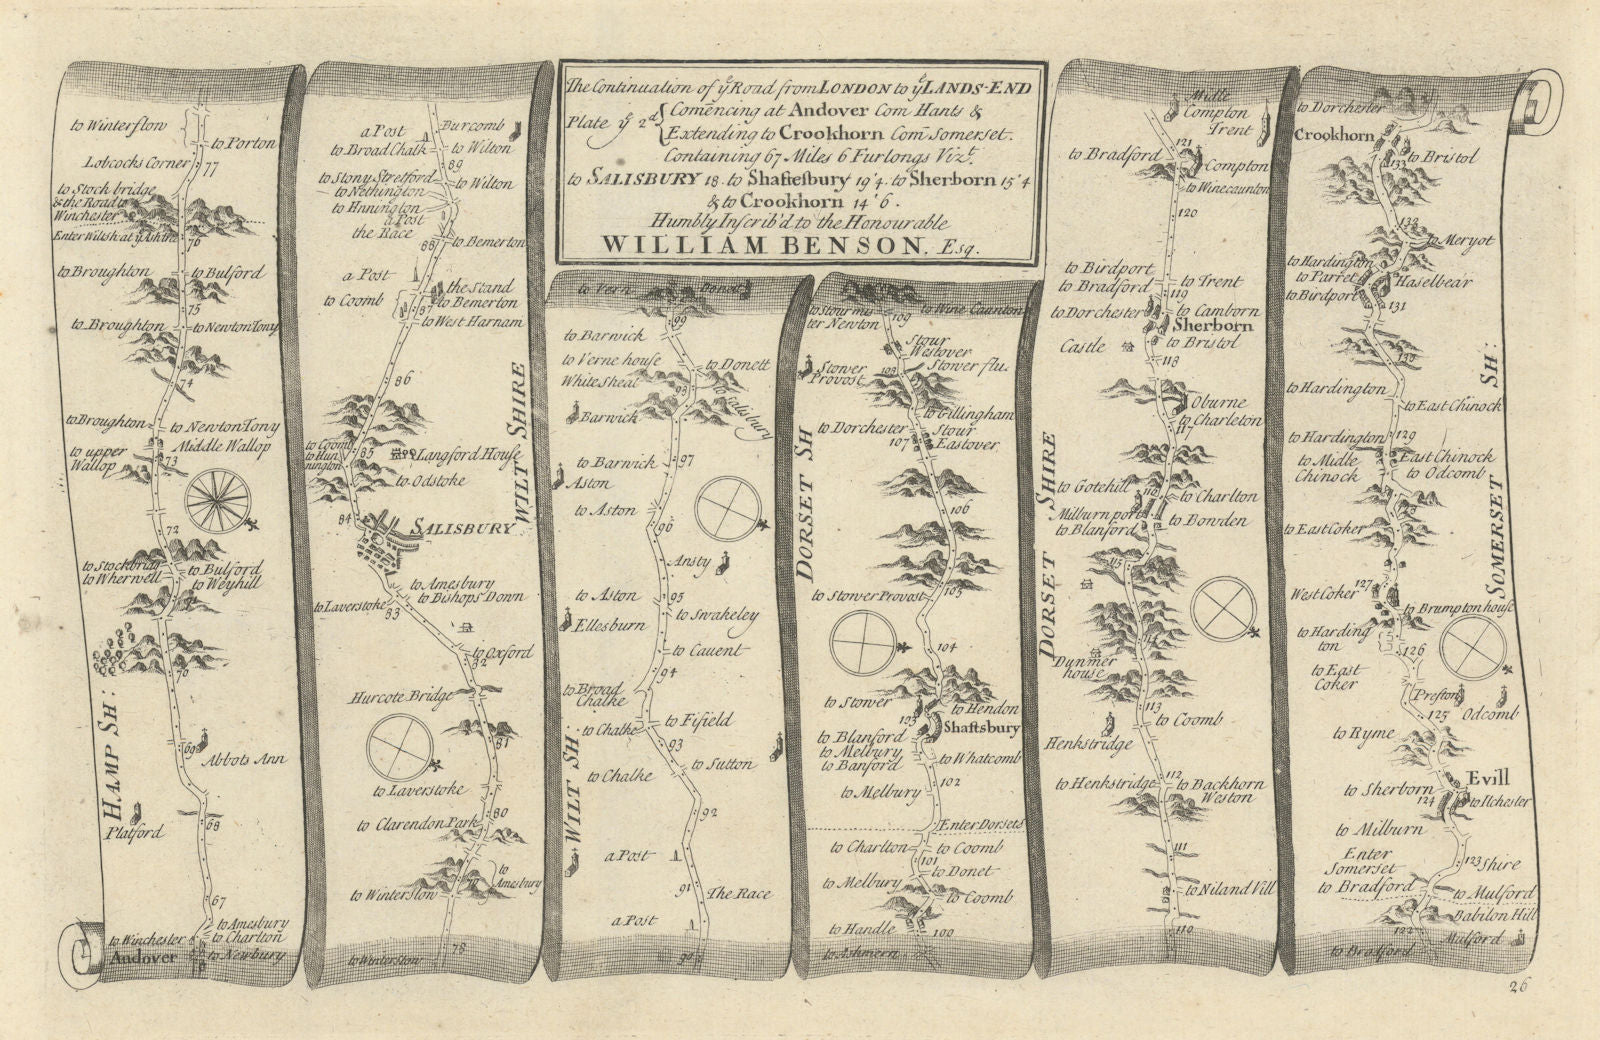 The Continuation of yͤ Road from LONDON to yͤ LANDS-END
Plate yͤ 2ᵈ
Comẽncing at Andover Com Hants &
Extending to Crookhorn Com Somerset.
Containing 67 Miles 6 Furlongs Vizᵗ.
to SALISBURY 18. to Shaftesbury 19'4. to Sherborn 15'4
& to Crookhorn 14'6.
Humbly Inscrib'd to the Honourable
WILLIAM BENSON. Esq.
to Winterslow
to Porton
Lobcocks Corner
77
to Stockbridge
& the Road to
Winchester
Enter Wiltsh: at yͤ Ashtree
76
to Broughton
to Bulford
75
to Broughton
to Newton Tony
74
to Broughton
to Newton Tony
Middle Wallop
to upper
Wallop
73
72
to Stockbridg
to Wherwell
to Bulford
to Weyhill
71
70
HAMP SH:
69
Abbots Ann
Platford
68
67
to Amesbury
to Winchester
to Charlton
Andover
to Newbury
a Post
Burcomb
to Broad Chalk
to Wilton
89
to Stony Stretford
to Wilton
to Nethington
to Hnnington
a Post
the Race
88
to Bemerton
a Post
the Stand
to Coomb
to Bemerton
87
to West Harnam
86
WILT SHIRE
to Coomb
to Hun
nington
85
Langford House
to Odstoke
84
SALISBURY
to Amesbury
to Bishops Down
to Laverstoke
83
to Oxford
82
Hurcote Bridge
81
to Laverstoke
80
to Clarendon Park
to
Amesbury
79
to Winterslow
78
to Winterslow
to Vern
Donett
99
to Barwick
to Verne house
to Donett
White Sheat
98
to Salisbury
Barwick
to Barwick
97
Aston
to Aston
96
Ansty
to Aston
95
to Swakeley
Ellesburn
to Cauent
94
to Broad
Chalke
to Chalke
to Fifield
93
to Sutton
to Chalke
WILT SH:
92
a Post
91
The Race
a Post
90
to Stour mis
ter Newton
109
to Wine Caunton
Stour
Westover
Stower flu.
Stower
Provost
108
to Gillingham
to Dorchester
107
Stour
Eastover
DORSET SH
106
to Stower Provost
105
104
to Stower
to Hendon
103
Shaftsbury
to Blanford
to Melbury
to Banford
to Whatcomb
102
to Melbury
Enter Dorsets
to Charlton
to Coomb
101
to Donet
to Melbury
to Coomb
to Handle
100
to Ashmern
Midle
Compton
Trent
121
to Bradford
Compton
to Winecaunton
120
to Birdport
to Bradford
to Trent
119
to Dorchester
to Camborn
Sherborn
Castle
to Bristol
118
Oburne
to Charleton
117
DORSET SHIRE
to Gotehill
116
to Charlton
Milburn port
to Blanford
to Bowden
115
114
Dunmer
house
113
to Coomb
Henkstridge
112
to Henkstridge
to Backhorn
Weston
111
to Niland Vill
110
to Dorchester
Crookhorn
133
to Bristol
132
to Meryot
to Hardington
to Parret
Haselbear
to Birdport
131
130
to Hardington
to East Chinock
to Hardington
129
to Midle
Chinock
East Chinock
to Odcomb
128
to East Coker
SOMERSET SH:
127
West Coker
to Brumpton house
to Harding
ton
126
to East
Coker
Preston
Odcomb
125
to Ryme
Evill
to Sherborn
124
to Ilchester
to Milburn
Enter
Somerset
Shire
123
to Bradford
to Mulford
Babilon Hill
122
Mulford
to Bradford
26